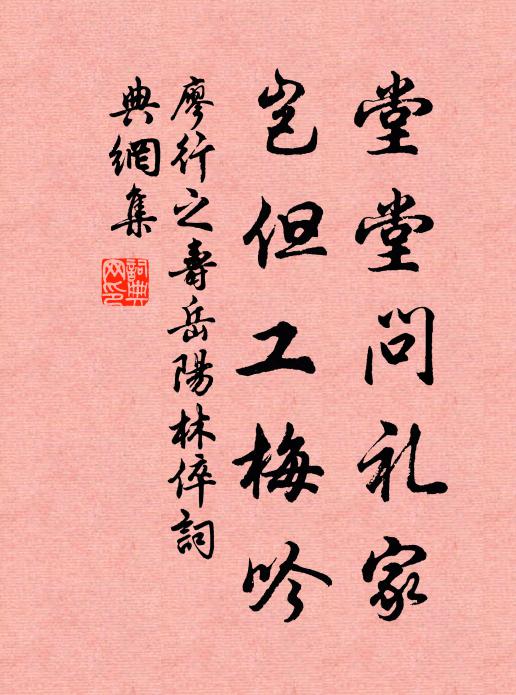 堂堂问礼家
岂但工梅吟
廖行之寿岳陽林倅詞
典網集
詞典网印